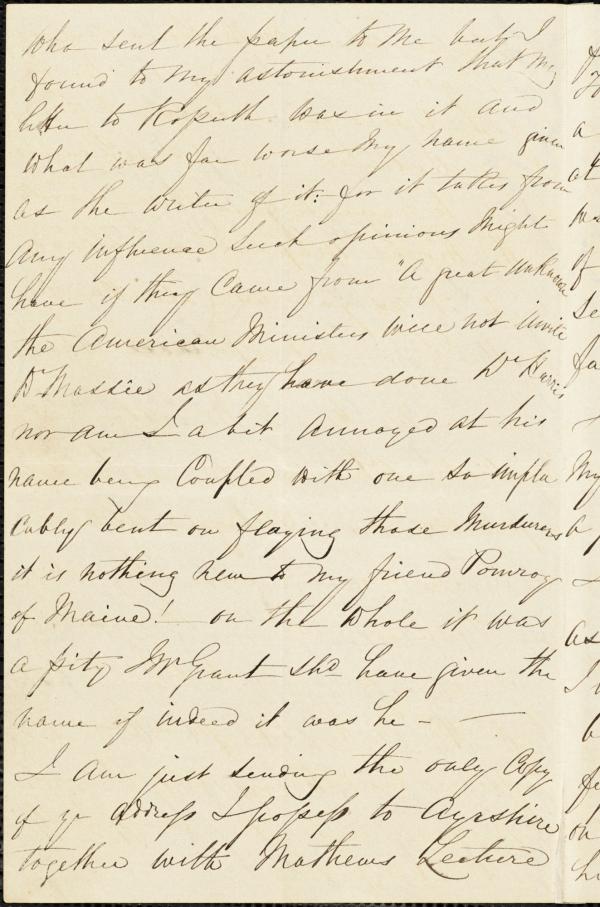 who sent the paper to me but I
found to my astonishment that my
letter to Kossuth was in it and
what was far worse my name given
as the writer of it: for it takes from
any influence such opinions might
have if they came from "a great unknown
the American Ministers will not invite
Dr Massie as they have done Dr Harris
nor am I a bit annoyed at his
name being Coupled with one so impla
cably bent on flaying those Murderers
it is nothing new to my friend Pomroy
of Maine! on the whole it was
a pity Mr Grant shd have given the
name if indeed it was he - —
I am just sending the only Copy
of yr address I possess to Ayrshire
together with Mathews Lecture